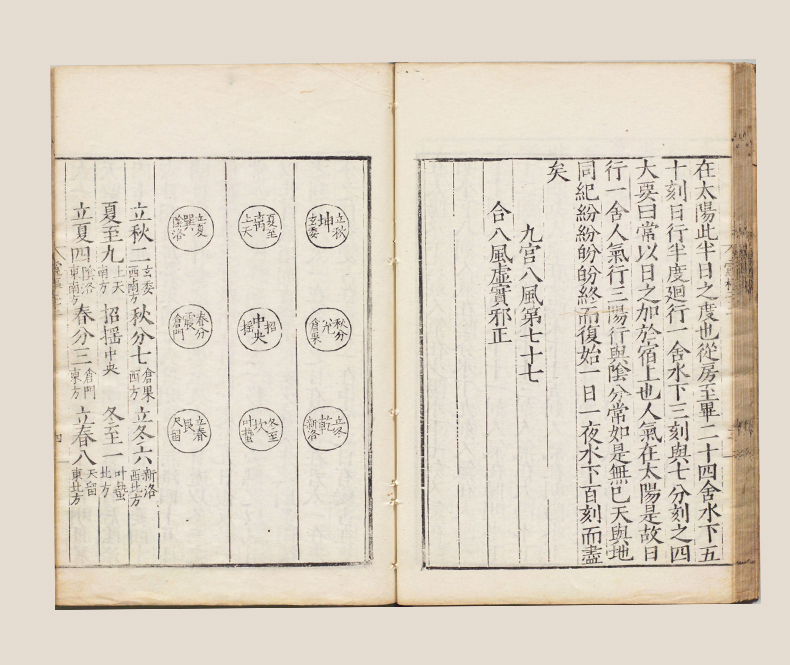 在太陽此半日之度也從房至畢二十四舍水下五
十刻日行半度廻行一舍水下三刻與七分刻之四
大要曰常以日之加於宿上也人氣在太陽是故日
行一舍人氣行三陽行與陰分常如是無已天與地
同紀紛紛盼盼終而復始一日一夜水下百刻而盡
矣
九宮八風第七十七
合八風虛實邪正
立秋 坤 玄委
秋分 兊 倉果
立冬 乾 新洛
夏至 离 上天
招 中央 搖
冬至 坎 叶蟄
立夏 巽 陰洛
春分 震 倉門
立春 艮 天留
立秋二 玄委 西南方 秋分七 倉果 西方 立冬六 新洛 西北方
夏至九 上天 南方 招搖 中央 冬至一 叶蟄 北方
立夏四 陰洛 東南方 春分三 倉門 東方 立春八 天留 東北方